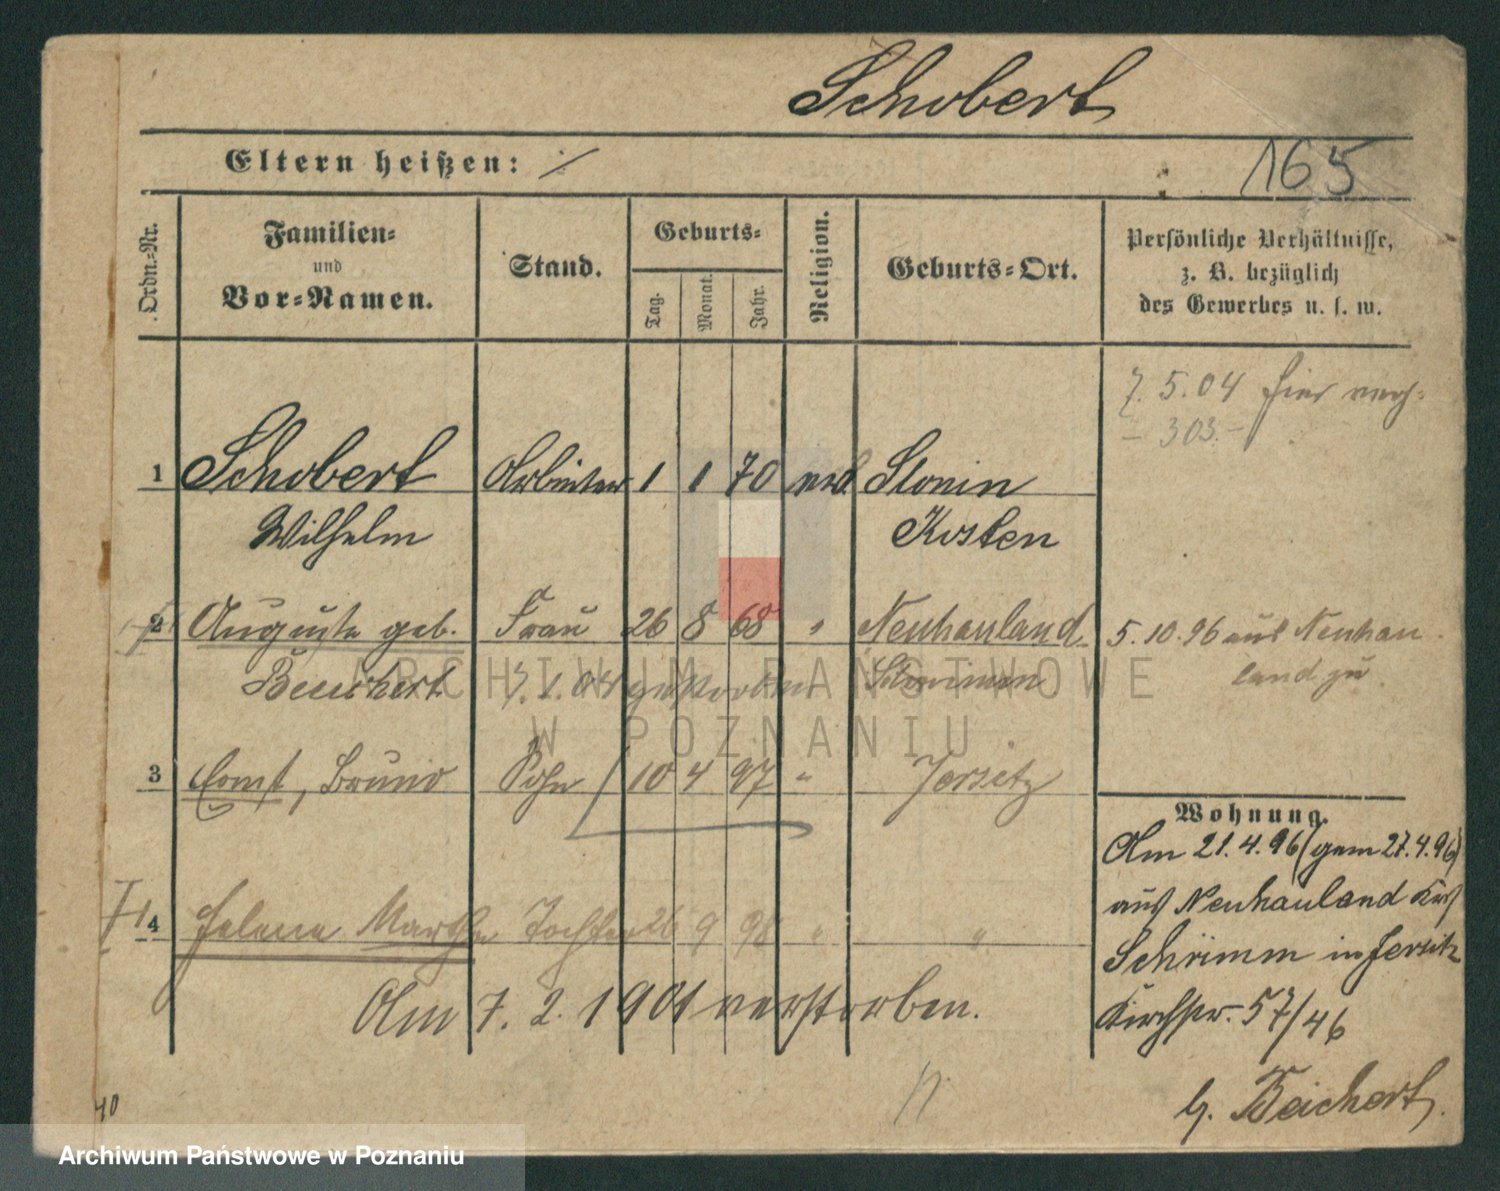 Schobert
Eltern heißen: /.
165
Ordn.-Nr.
Familien-
und
Vor-Namen.
Stand.
Geburts-
Tag.
Monat.
Jahr.
Religion.
Geburts-Ort.
Persönliche Verhältnisse,
z. B. bezüglich
des Gewerbes u. s. w.
7. 5. 04 hier
- 303. -
1 Schobert Arbeiter 1 1 70 Slonin
Wilhelm Kosten
2 Auguste geb. Frau 26 8 68 " Neuhauland 5. 10. 96 aus Neuhau
Beuchert 1. 04 gestorben Schrimm land zu
3 Ernst, Bruno Sohn 10 4 97 " Jersitz
Wohnung.
Am 21. 4. 96 (gem 27. 4. 96)
aus Neuhauland
Schrimm in Jersitz
Kirchstr. 57/46
b. Beichert.
4 Helene Marthe Tochter 26 9 98 " "
Am 7. 2. 1901 verstorben.
40
ARCHIWUM PAŃSTWOWE
W POZNANIU
Archiwum Państwowe w Poznaniu